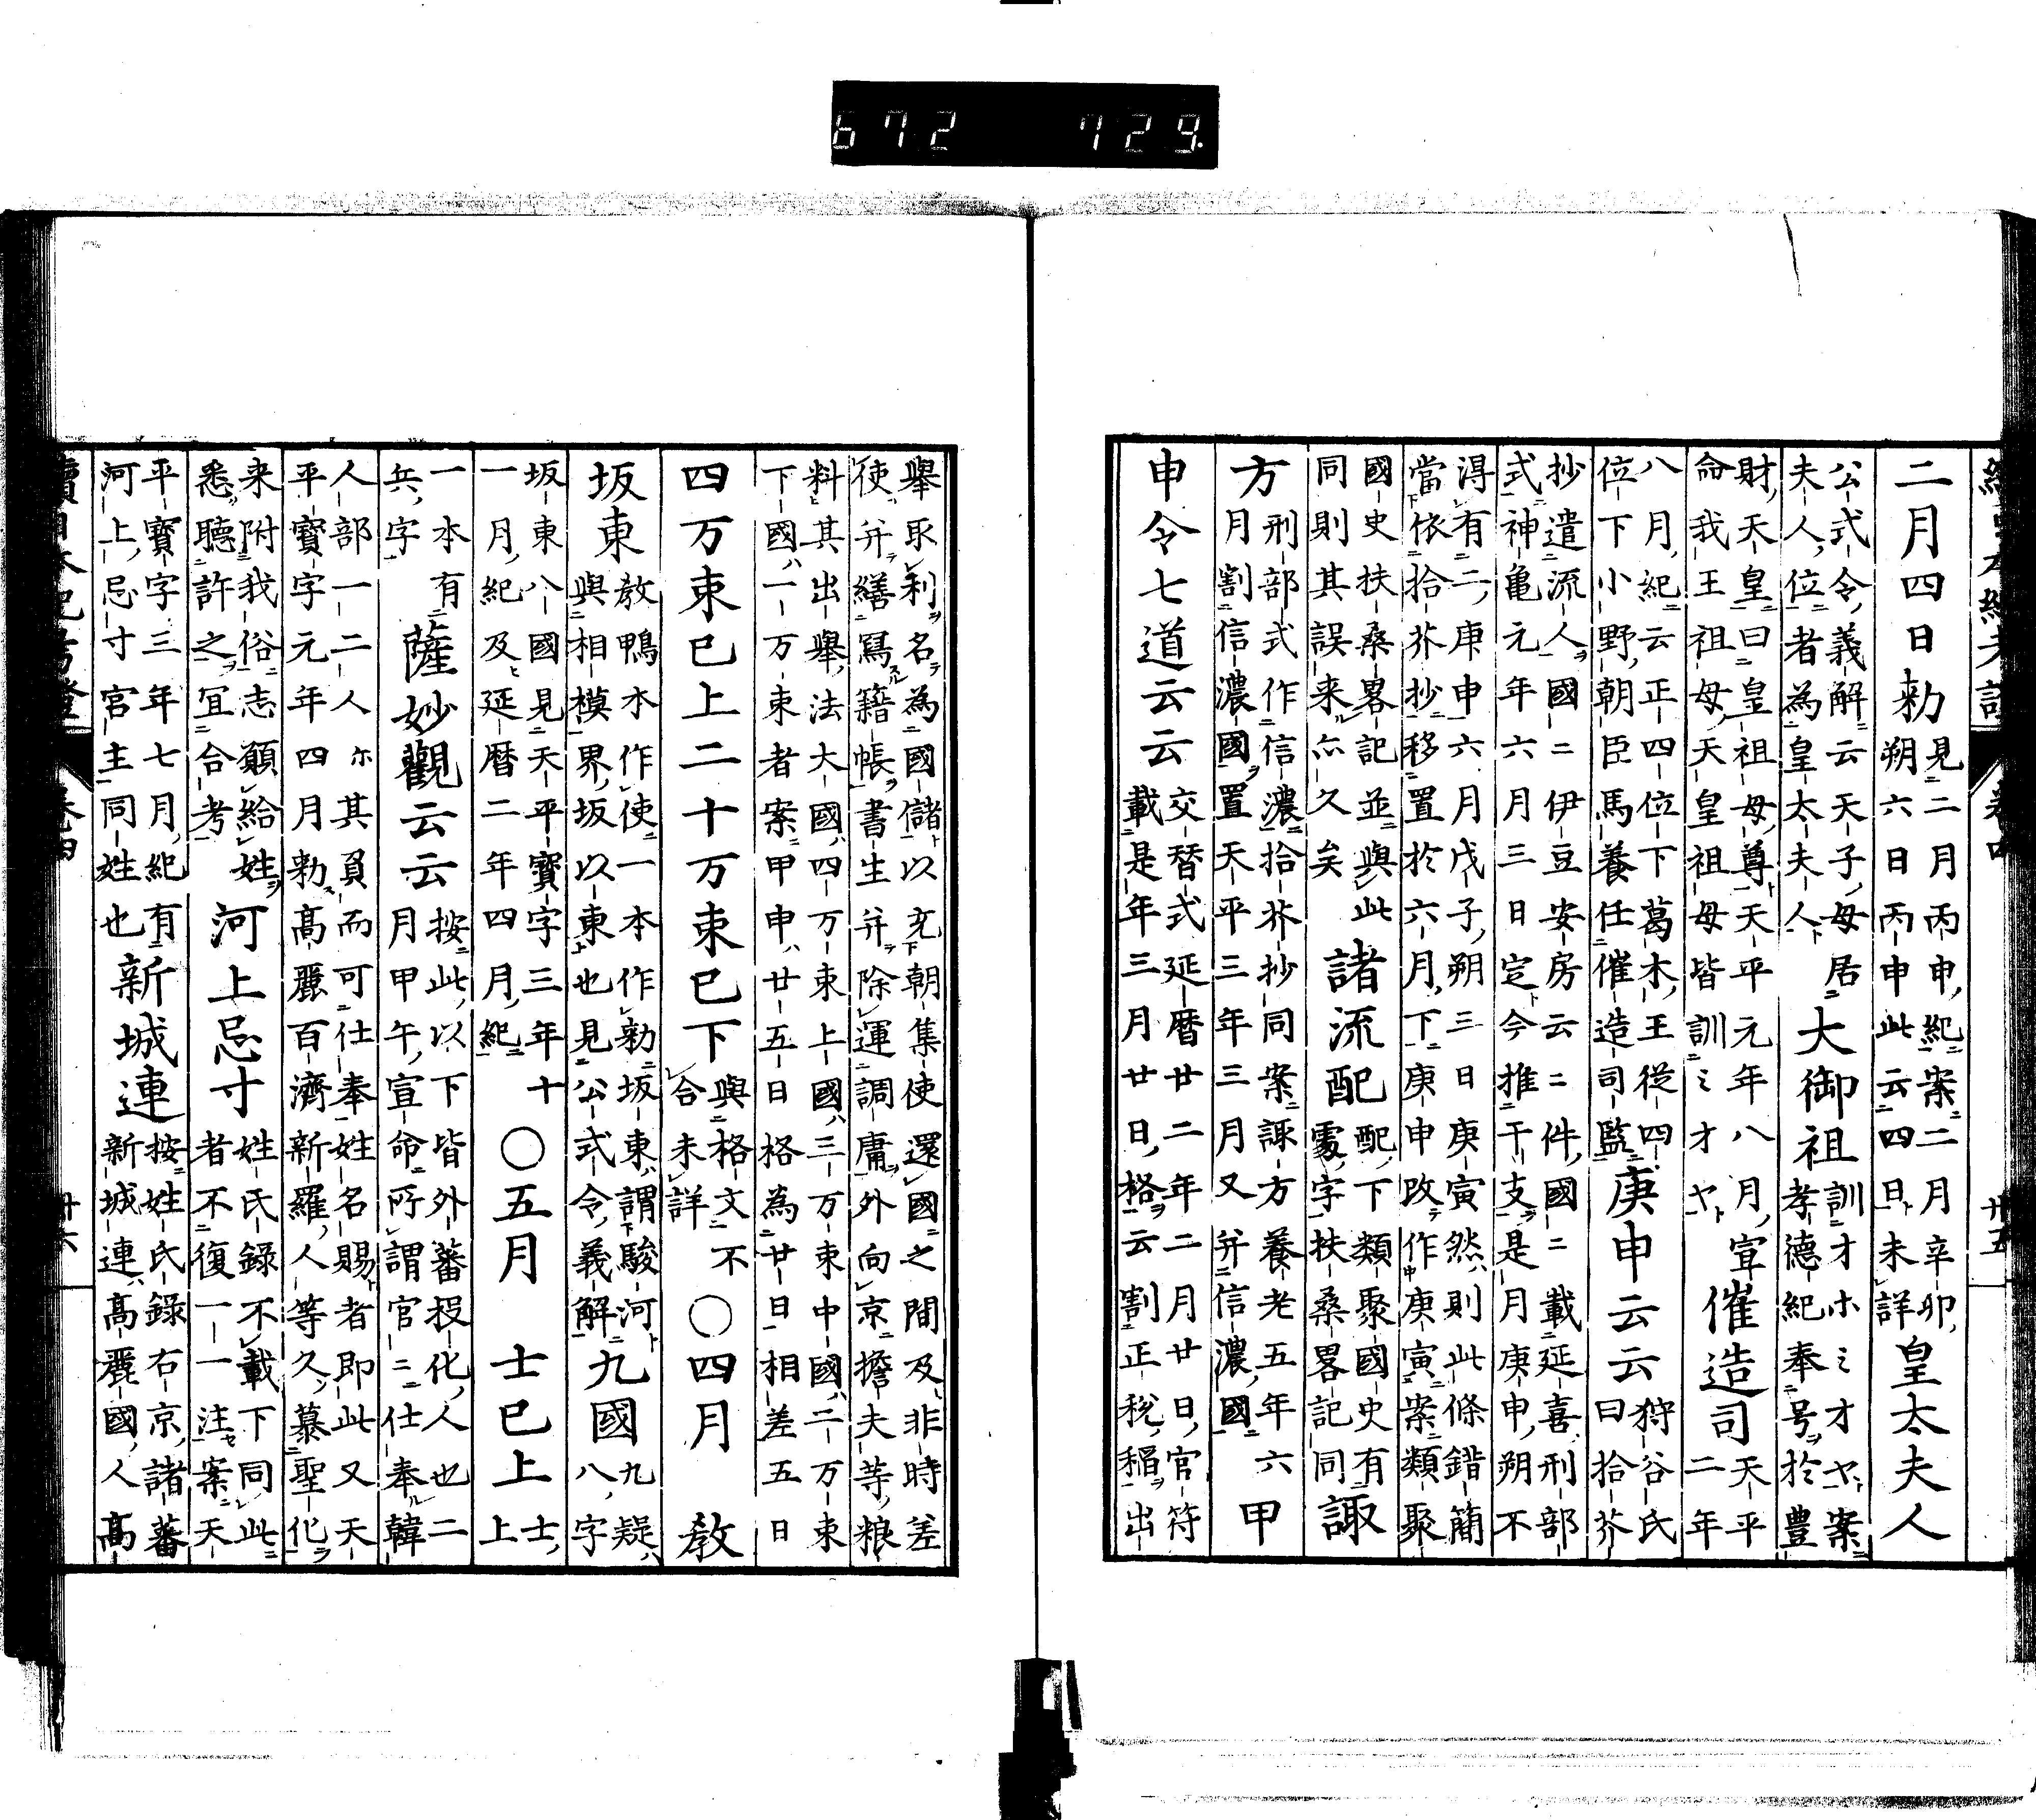 672 729
二月四日勅
見二月丙申紀案二月辛卯
朔六日丙申此云四日未詳
皇太夫人
公式令義解云天子母居
夫人位者為皇太夫人
大御祖
訓オホミオヤ案
孝德紀奉号於豊
財天皇曰皇祖母尊天平元年八月宣
命我王祖母天皇祖母皆訓ミオヤ
催造司
天平
二年
八月紀云正四位下葛木王從四
位下小野朝臣馬養任催造司監
庚申云云
狩谷氏
曰拾芥
抄遣流人國ニ伊豆安房云ニ件國ニ載延喜刑部
式神亀元年六月三日定今推干支是月庚申朔不
淂有二庚申六月戊子朔三日庚寅然則此條錯簡
當依拾芥抄移置於六月下庚申改作庚寅案類聚
國史扶桑畧記並與此
同則其誤来尒久矣
諸流配
配下類聚國史有
䖏字扶桑畧記同
諏
方
刑部式作信濃拾芥抄同案諏方養老五年六
月割信濃國置天平三年三月又并信濃國
甲
申令七道云云
交替式延暦廿二年二月廿日官符
載是年三月廿日格云割正税稲出
舉取利名為國儲以充朝集使還國之間及非時差
使并繕寫籍帳書生并除運調庸外向京擔夫等粮
料其出舉法大國四万束上國三万束中國二万束
下國一万束者案甲申廿五日格為廿日相差五日
四万束已上二十万束已下
與格文不
合未詳
〇四月
教
坂東
教鴨本作使一本作勅坂東謂駿河
與相模界坂以東也見公式令義解
九國
九疑
八字
坂東八國見天平寶字三年十
一月紀及延暦二年四月紀
〇五月
士已上
士
上
一本有
兵字
薩妙觀云云
按此以下皆外蕃投化人也二
月甲午宣命所謂官ニ仕奉韓
人部一二人尒其負而可仕奉姓名賜者即此又天
平寳字元年四月勅高麗百濟新羅人等久慕聖化
来附我俗志願給姓
悉聽許之宜合考
河上忌寸
姓氏錄不載下同此
者不復一一注案天
平寳字三年七月紀有
河上忌寸宮主同姓也
新城連
按姓氏錄右京諸蕃
新城連高麗國人高